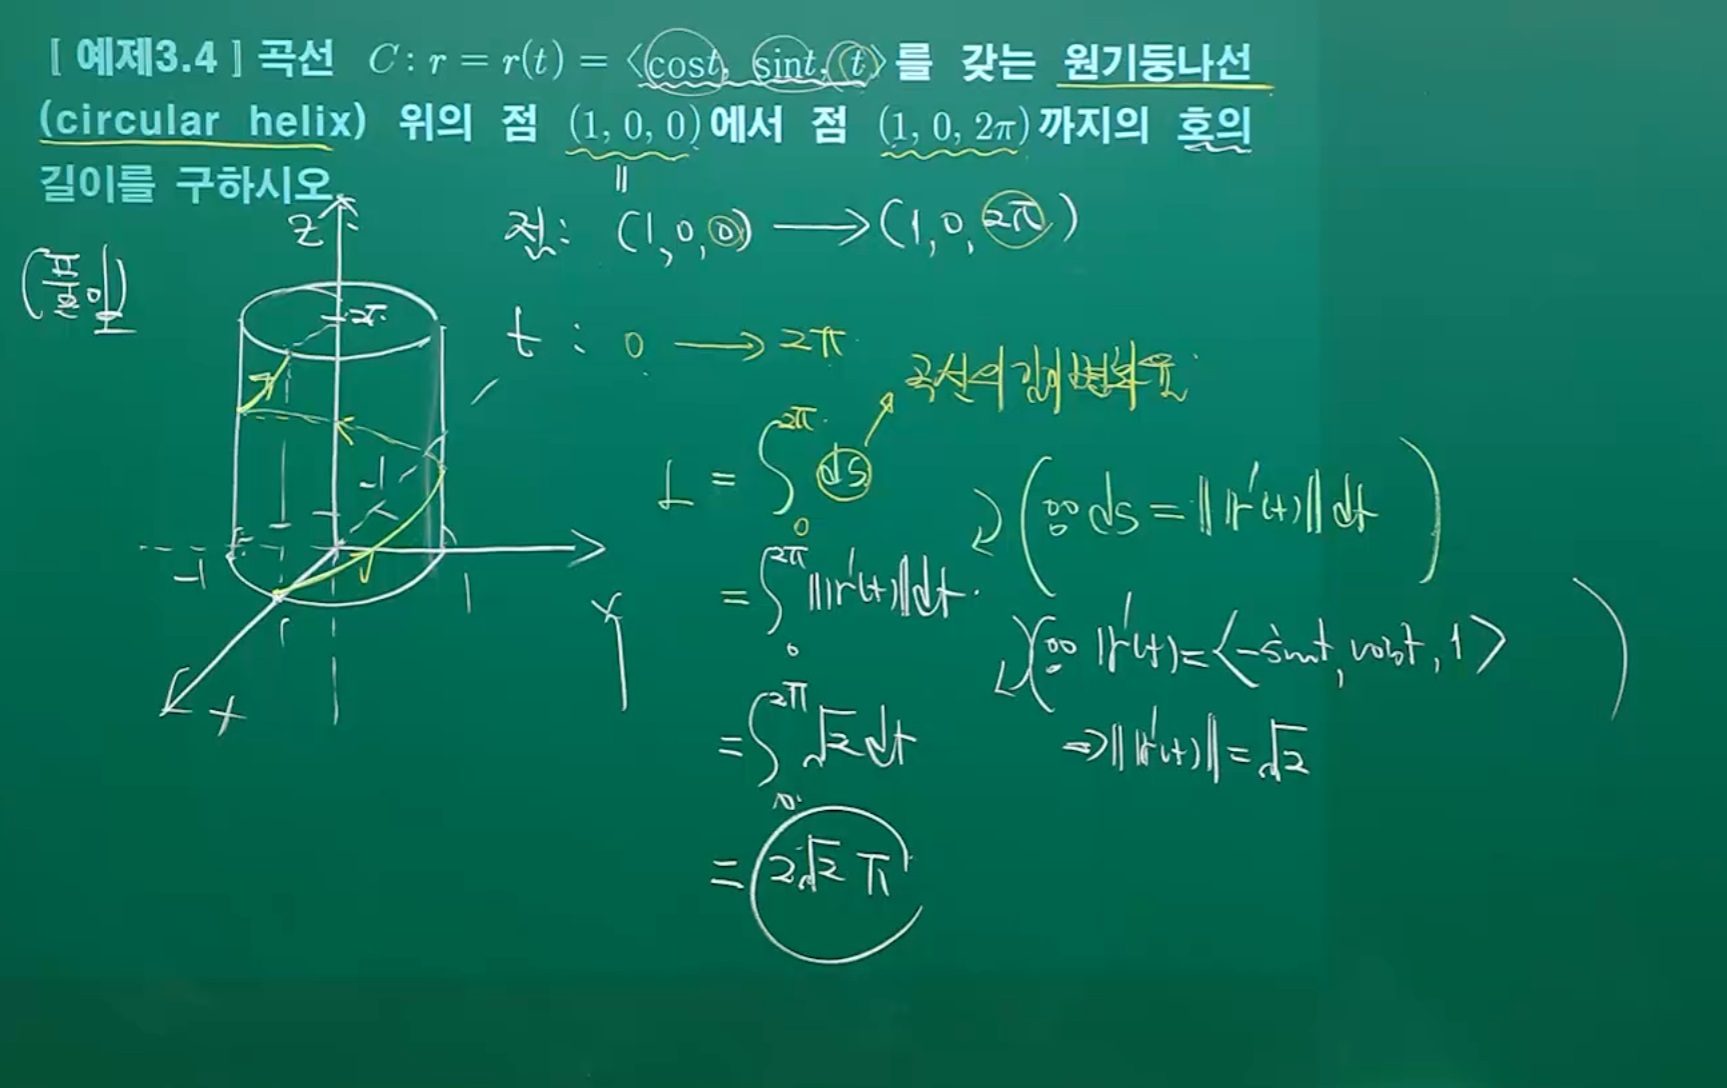 [ 예제3.4 ] 곡선 C : r = r(t) = ⟨cost, sint, t⟩를 갖는 원기둥나선
(circular helix) 위의 점 (1, 0, 0)에서 점 (1, 0, 2π)까지의 호의
길이를 구하시오.
(풀이)
점: (1,0,0) ⟶ (1,0,2π)
t : 0 ⟶ 2π
곡선의 길이변화율
L = ∫₀^{2π} ds (∵ ds = ‖r′(t)‖dt)
= ∫₀^{2π} ‖r′(t)‖dt. (∵ r′(t) = ⟨-sint, cost, 1⟩)
= ∫₀^{2π} √2 dt ⇒ ‖r′(t)‖ = √2
= 2√2 π
Z
2π
-1
-1
1
1
Y
X